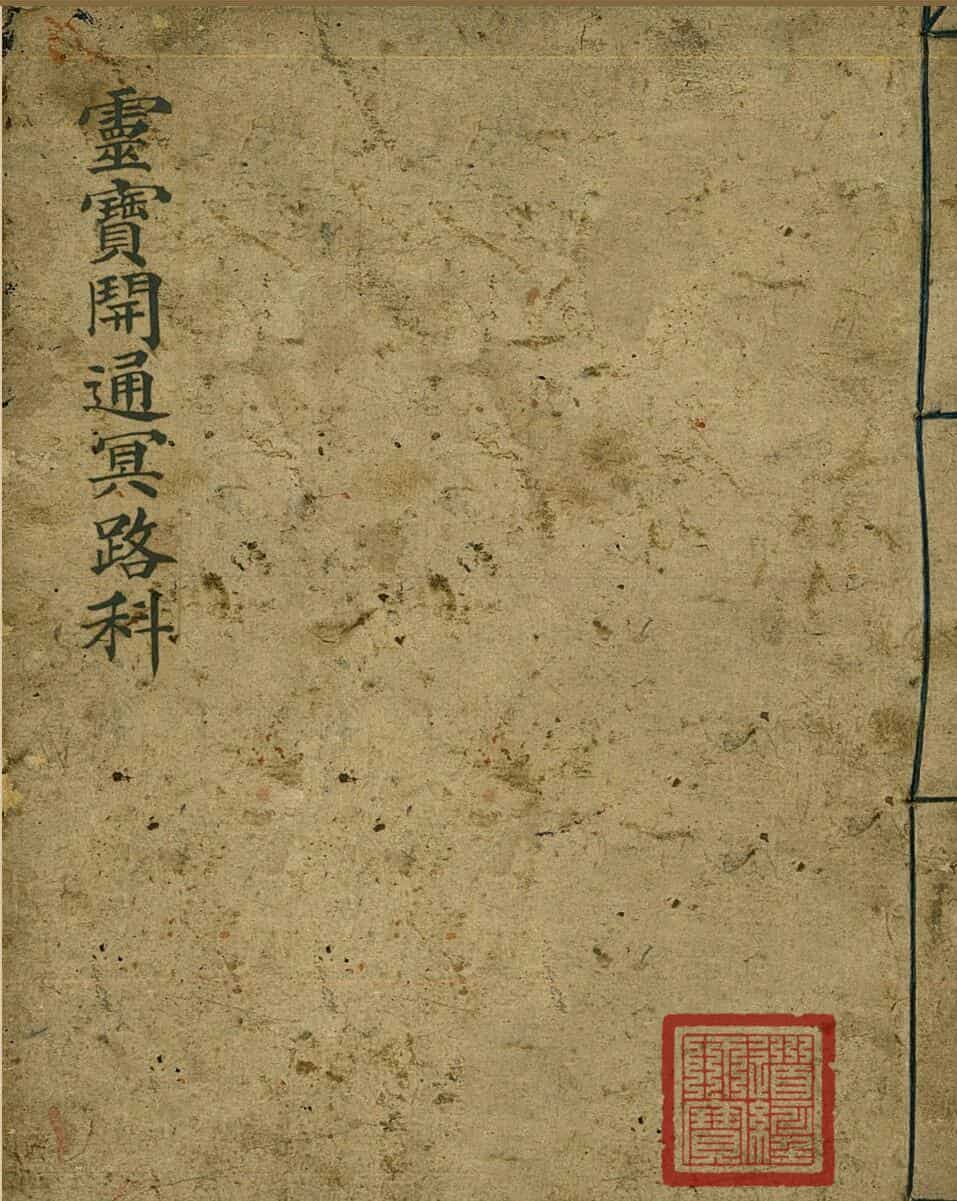 靈寶開通冥路科